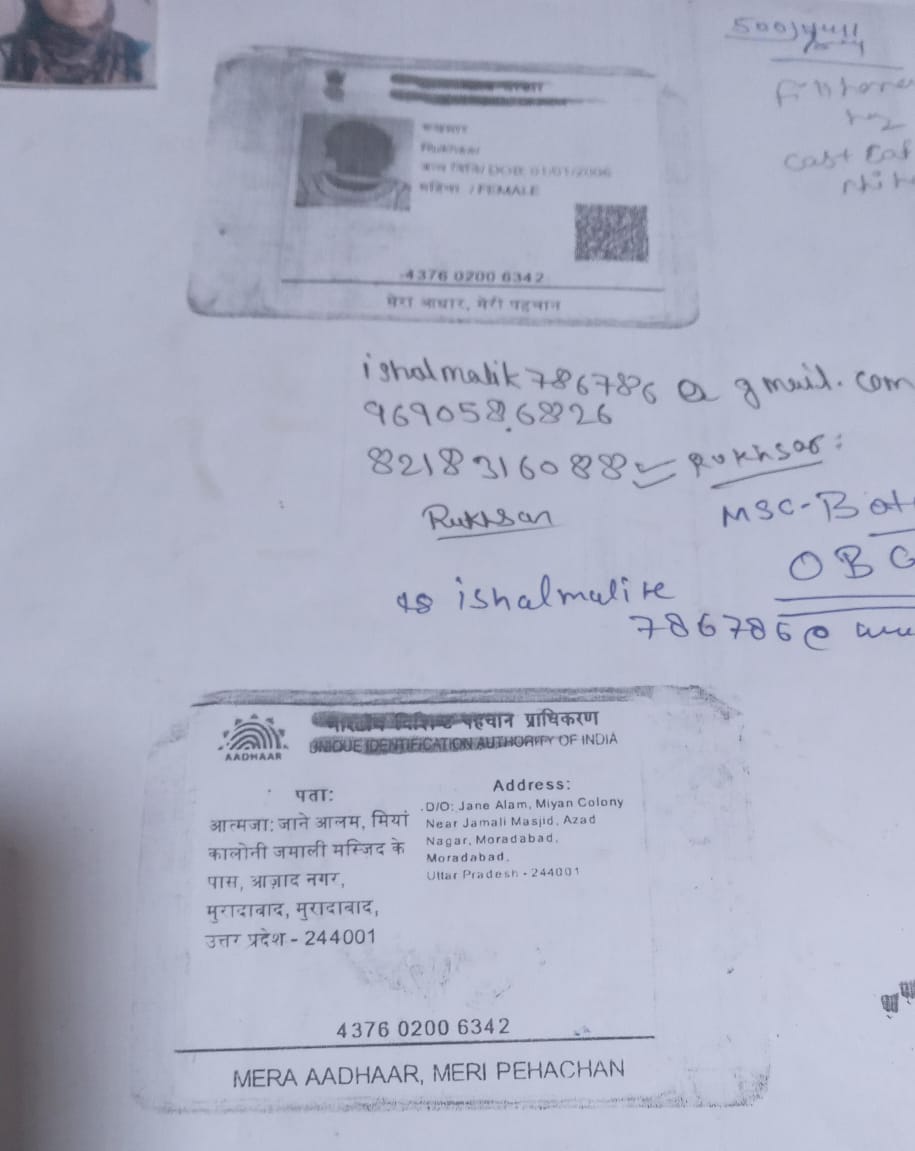 Rukhsar
जन्म तिथि/ DOB: 01/01/2006
महिला / FEMALE
4376 0200 6342
मेरा आधार, मेरी पहचान
ishalmalik786786@gmail.com
9690586826
8218316088 Rukhsar:
Rukhsar
MSC-Bot
OBC
ishalmalik
786786@
पहचान प्राधिकरण
UNIQUE IDENTIFICATION AUTHORITY OF INDIA
AADHAAR
पता:
आत्मजा: जाने आलम, मियां
कालोनी जमाली मस्जिद के
पास, आज़ाद नगर,
मुरादाबाद, मुरादाबाद,
उत्तर प्रदेश - 244001
Address:
D/O: Jane Alam, Miyan Colony
Near Jamali Masjid, Azad
Nagar, Moradabad,
Moradabad,
Uttar Pradesh - 244001
4376 0200 6342
MERA AADHAAR, MERI PEHACHAN